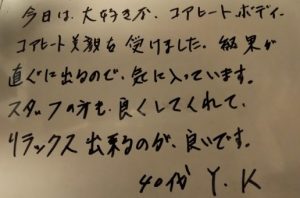 今日は、大好きな、コアヒートボディ、
コアヒート美顔を受けました。結果が
直ぐに出るので、気に入っています。
スタッフの方も、良くしてくれて、
リラックス出来るのが、良いです。
40代 Y.K